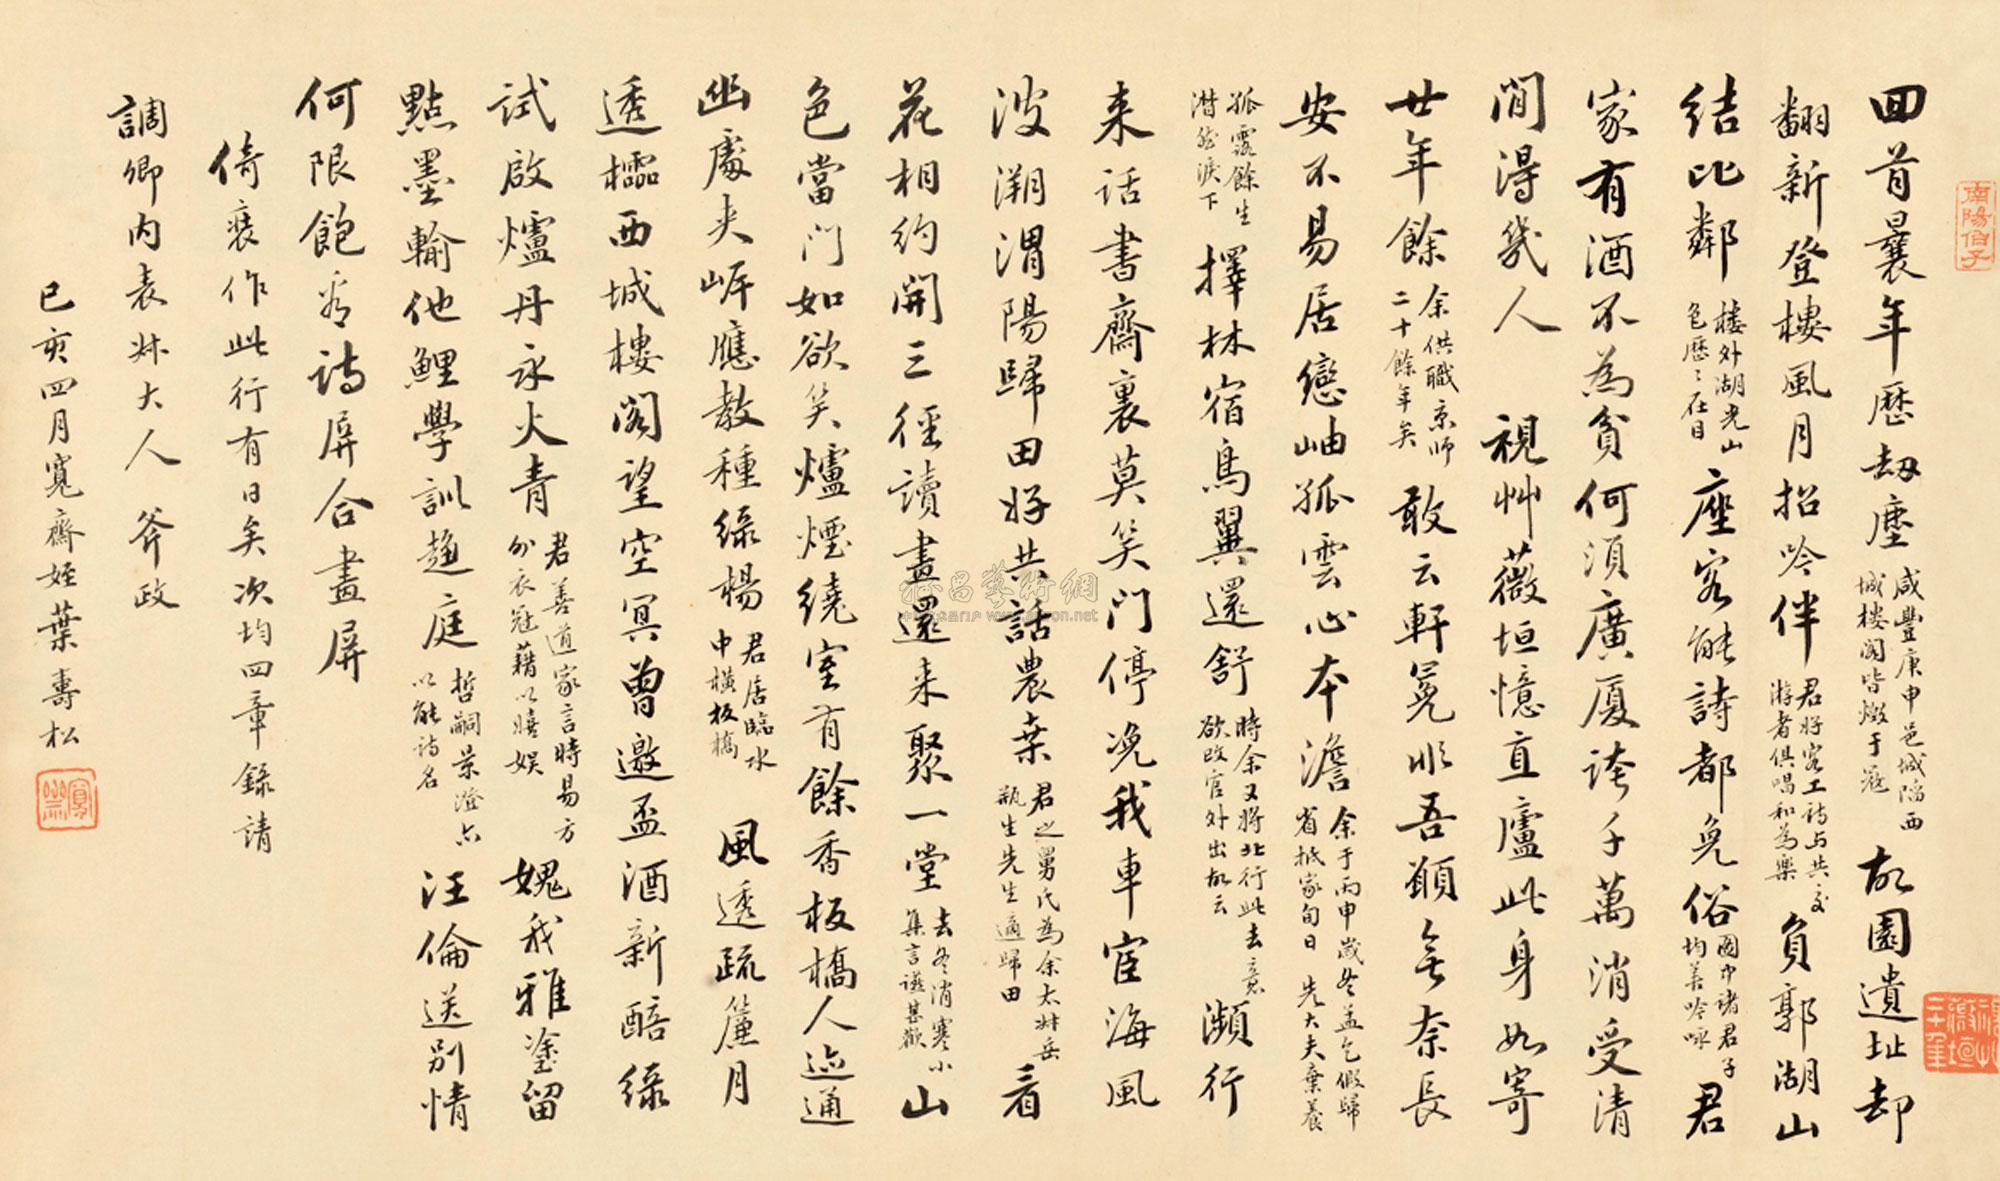 回首曩年歷劫塵咸豐庚申邑城陷西城樓閣皆燬于寇故園遺址却
翻新登樓風月招吟伴君好客工詩与共交游者俱唱和為樂負郭湖山
結比鄰樓外湖光山色歷〻在目座客能詩都免俗國中諸君子均善吟咏君
家有酒不為貧何須廣廈誇千萬消受清
閒得幾人 視艸薇垣憶直廬此身如寄
廿年餘余供職京師二十餘年矣敢云軒冕順吾願無奈長
安不易居戀岫孤雲心本澹余于丙申歲冬孟乞假歸省抵家旬日先大夫棄養
孤露餘生潸然淚下擇林宿鳥翼還舒時余又將北行此去意欲改官外出故云瀕行
来話書齋裏莫笑門停況我車宦海風
波溯渭陽歸田好共話農桑君之舅氏為余太姊岳瓶生先生適歸田看
花相約開三徑讀畫還来聚一堂去冬消寒小集言讌甚歡山
色當門如欲笑爐煙繞室有餘香板橋人迹通
幽處夾岸應教種綠楊君居臨水中橫板橋 風透疏簾月
透櫺西城樓閣望空冥曾邀盃酒新醅綠
試啟爐丹永火青君善道家言時易方外衣冠藉以嬉娱媿我雅塗留
點墨輸他鯉學訓趨庭哲嗣景澄亦以能詩名汪倫送別情
何限飽看詩屏合畫屏
倚裝作此行有日矣次均四章錄請
調卿内表姊大人 斧政
已亥四月寬齋姪葉壽松
南陽伯子